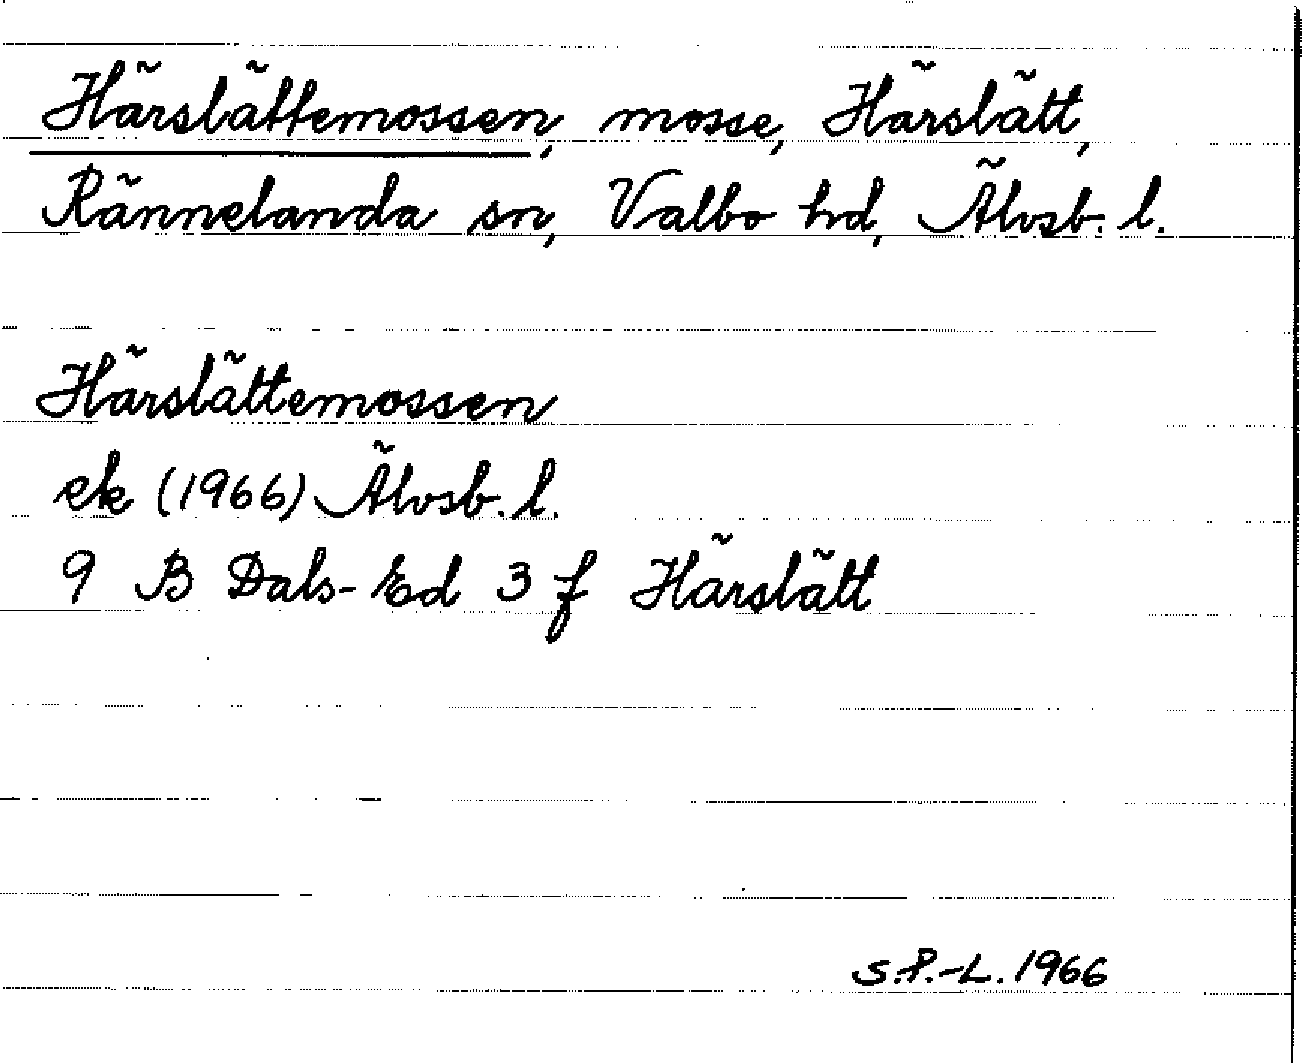 Härslättemossen, mosse, Härslätt,
Rännelanda sn, Valbo hd, Älvsb. l.
Härslättemossen
ek (1966) Älvsb. l.
9 B Dals-Ed 3 f Härslätt
S.P.-L. 1966